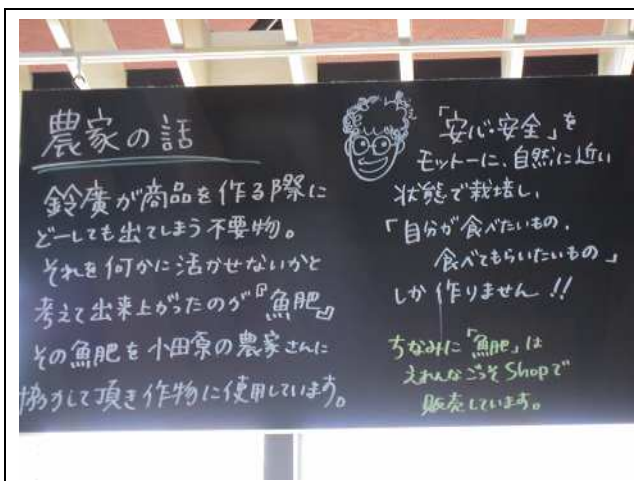 農家の話
鈴廣が商品を作る際に
どーしても出てしまう不要物。
それを何かに活かせないかと
考えて出来上がったのが『魚肥』
その魚肥を小田原の農家さんに
協力して頂き作物に使用しています。
「安心・安全」を
モットーに、自然に近い
状態で栽培し、
「自分が食べたいもの、
食べてもらいたいもの」
しか作りません!!
ちなみに「魚肥」は
えれんなごっそShopで
販売しています。